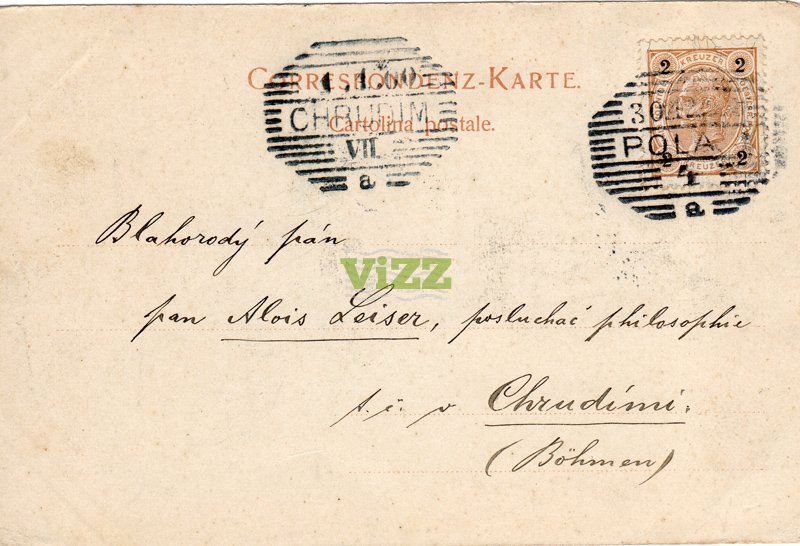 CORRESPONDENZ-KARTE.
Cartolina postale.
CHRUDIM
VII
a
2 KREUZER 2
30.12
POLA
2 2
1
a
Blahorodý pán
ViZZ
pan Alois Leiser, posluchač philosophie
t. č. v Chrudimi.
(Böhmen)